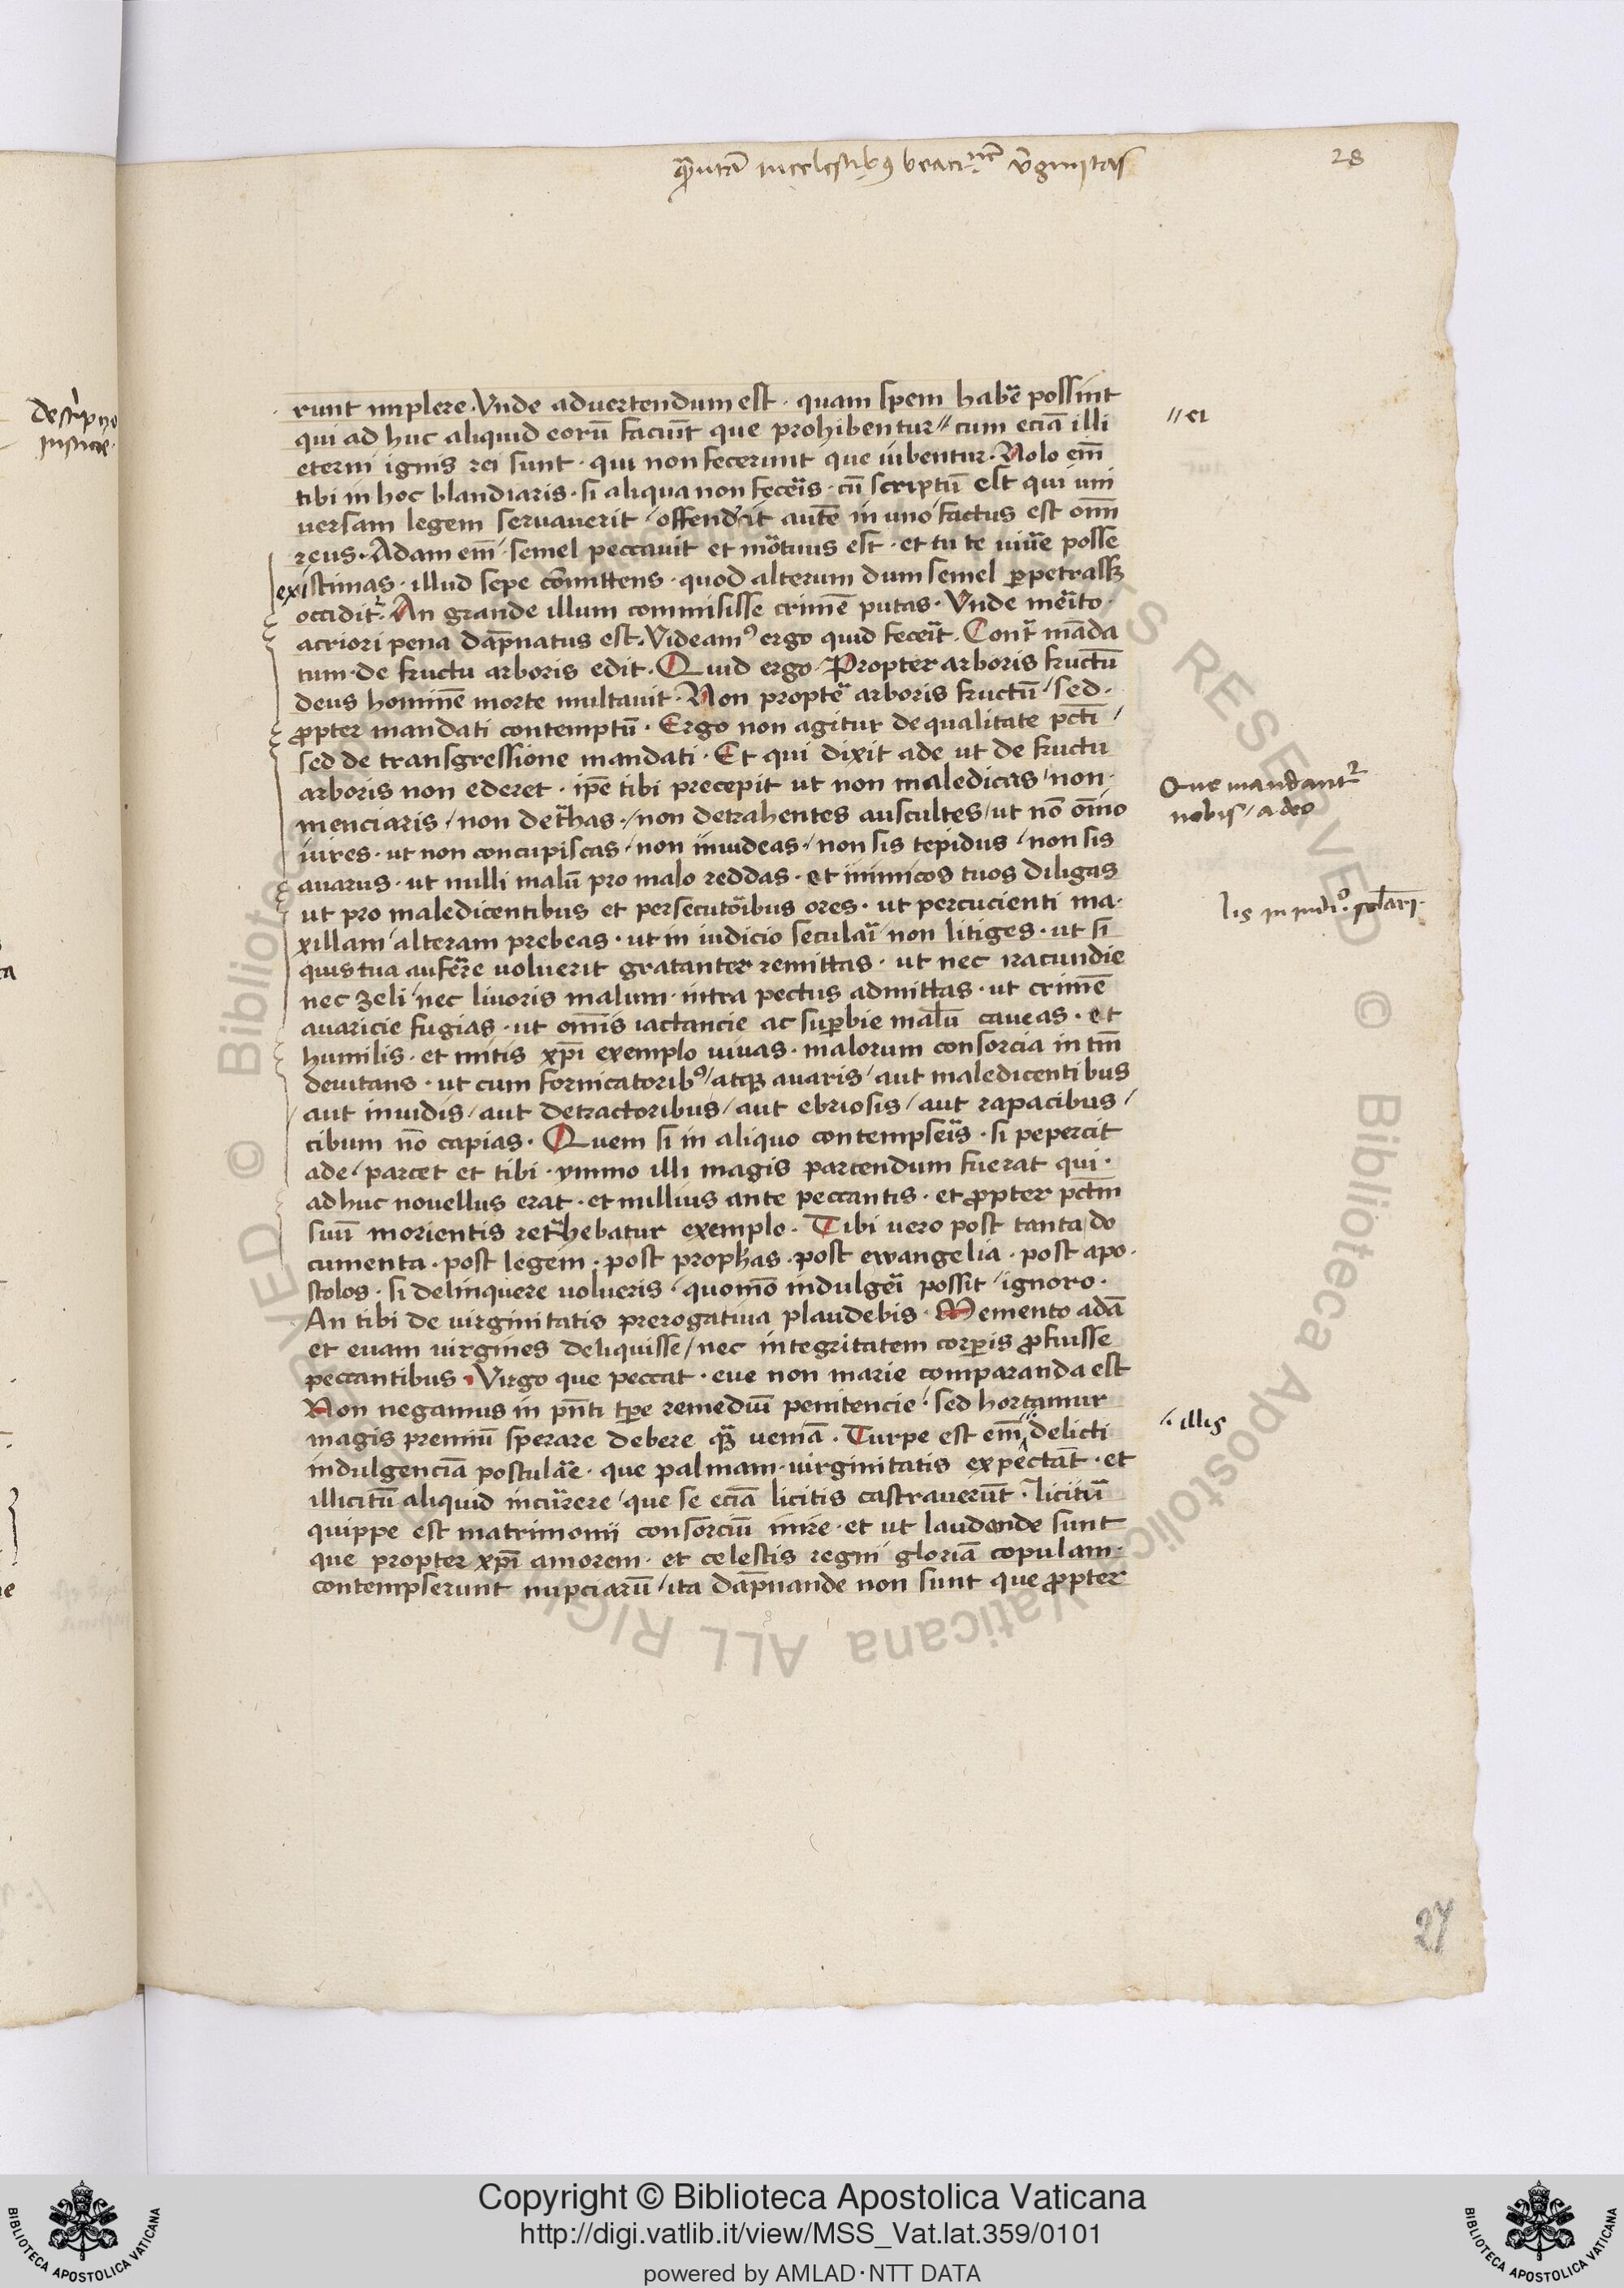 28
runt implere. Vnde aduertendum est · quam spem habe͛ possint
qui ad huc aliquid eorū faciūt que prohibentur // cum eciā illi
// et
eterni ignis rei sunt · qui non fecerunt que iubentur. Nolo em̄
tibi in hoc blandiaris · si aliqua non fece͛is · cū scriptū est qui uni
uersam legem seruauerit / offenderit autē in uno factus est om̄
reus. Adam em̄ / semel peccauit et mo͛tuus est · et tu te uiue͛ posse
existimas · illud sepe cōmittens · quod alterum dum semel ꝑpetrassꝫ
occidit᷑. An grande illum commisisse crimē putas. Vnde me͛ito
acriori pena dāpnatus est. Videamꝰ ergo quid fece͛it. Contᷓ māda
tum · de fructu arboris edit. Quid ergo. Propter arboris fructū
deus hominē morte multauit. Non propte͛ arboris fructū / sed ·
ꝓpter mandati contemptū. Ergo non agitur de qualitate pcti̅ /
sed de transgressione mandati. Et qui dixit ade ut de fructu
arboris non ederet · ip̄e tibi precepit ut non maledicas / non ·
Que mandant᷑
nobis / a deo
menciaris / non detᷓhas · / non detrahentes auscultes / ut nō om̄o
iures · ut non concupiscas / non inuideas / non sis tepidus / non sis
auarus · ut nulli malū pro malo reddas · et inimicos tuos diligas
ut pro maledicentibus et persecuto͛ibus ores · ut percucienti ma ·
xillam / alteram prebeas · ut in iudicio secula͛i / non litiges · ut si
quis tua aufer͛re uoluerit gratanter remittas · ut nec iracundie
nec zeli / nec liuoris malum · intra pectus admittas · ut crimē
auaricie fugias · ut om̄is iactancie ac suꝑbie malū caueas · et
humilis · et mitis xp̄i exemplo uiuas · malorum consorcia in tm̄
deuitans · ut cum fornicatoribꝰ / atqꝫ auaris / aut maledicentibus
aut inuidis / aut detractoribus / aut ebriosis / aut rapacibus /
cibum nō capias. Quem si in aliquo contempse͛is · si pepercit
ade / parcet et tibi · ymmo illi magis parcendum fuerat qui ·
ad huc nouellus erat · et nullius ante peccantis · et ꝓpter pctm̄
suū morientis retᷓhebatur exemplo. Tibi uero post tanta do
cumenta · post legem · post prophās · post ewangelia · post apo ·
stolos · si delinquere uolueris / quomō indulge͛i possit / ignoro ·
An tibi de uirginitatis prerogatiua plaudebis. Memento adā
et euam uirgines deliquisse / nec integritatem corꝑis ꝓfuisse
peccantibus. Virgo que peccat · eue non marie comparanda est
Non negamus in pn̄ti tꝑe remediū penitencie · sed hortamur
magis premiū sperare debere qᷓ ueniā. Turpe est em̄ delicti
illis
indulgenciā postula͛e · que palmam · uirginitatis expectāt · et
illicitū aliquid incur͛rere / que se eciā licitis castrauerūt · licitū
quippe est matrimonii consorciū inire · et ut laudande sunt
que propter xp̄i amorem · et celestis regni gloriā copulam ·
contempserunt nupciarū / ita dāpnande non sunt que ꝓpter
27
Copyright © Biblioteca Apostolica Vaticana
http://digi.vatlib.it/view/MSS_Vat.lat.359/0101
powered by AMLAD·NTT DATA
BIBLIOTECA APOSTOLICA VATICANA
BIBLIOTECA APOSTOLICA VATICANA